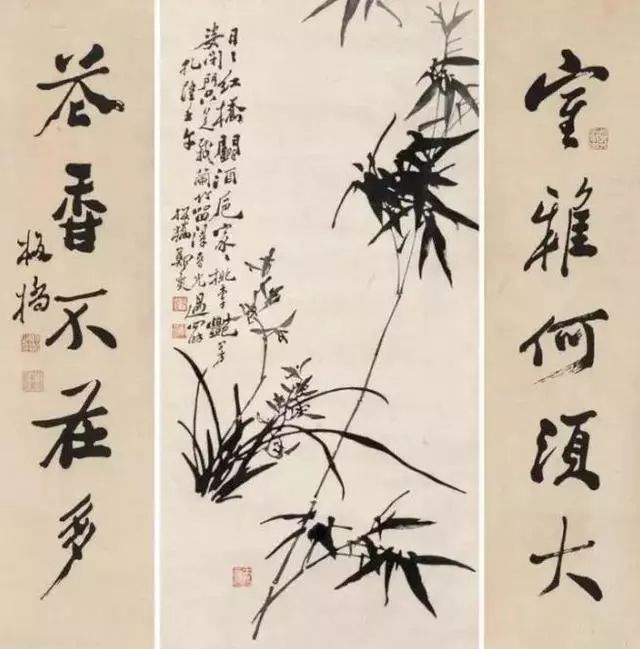 室雅何須大
日〻紅橋鬬酒卮家〻桃李艷芳
姿閉門只是栽蘭竹留得春光過四時
板橋鄭燮
花香不在多
板橋